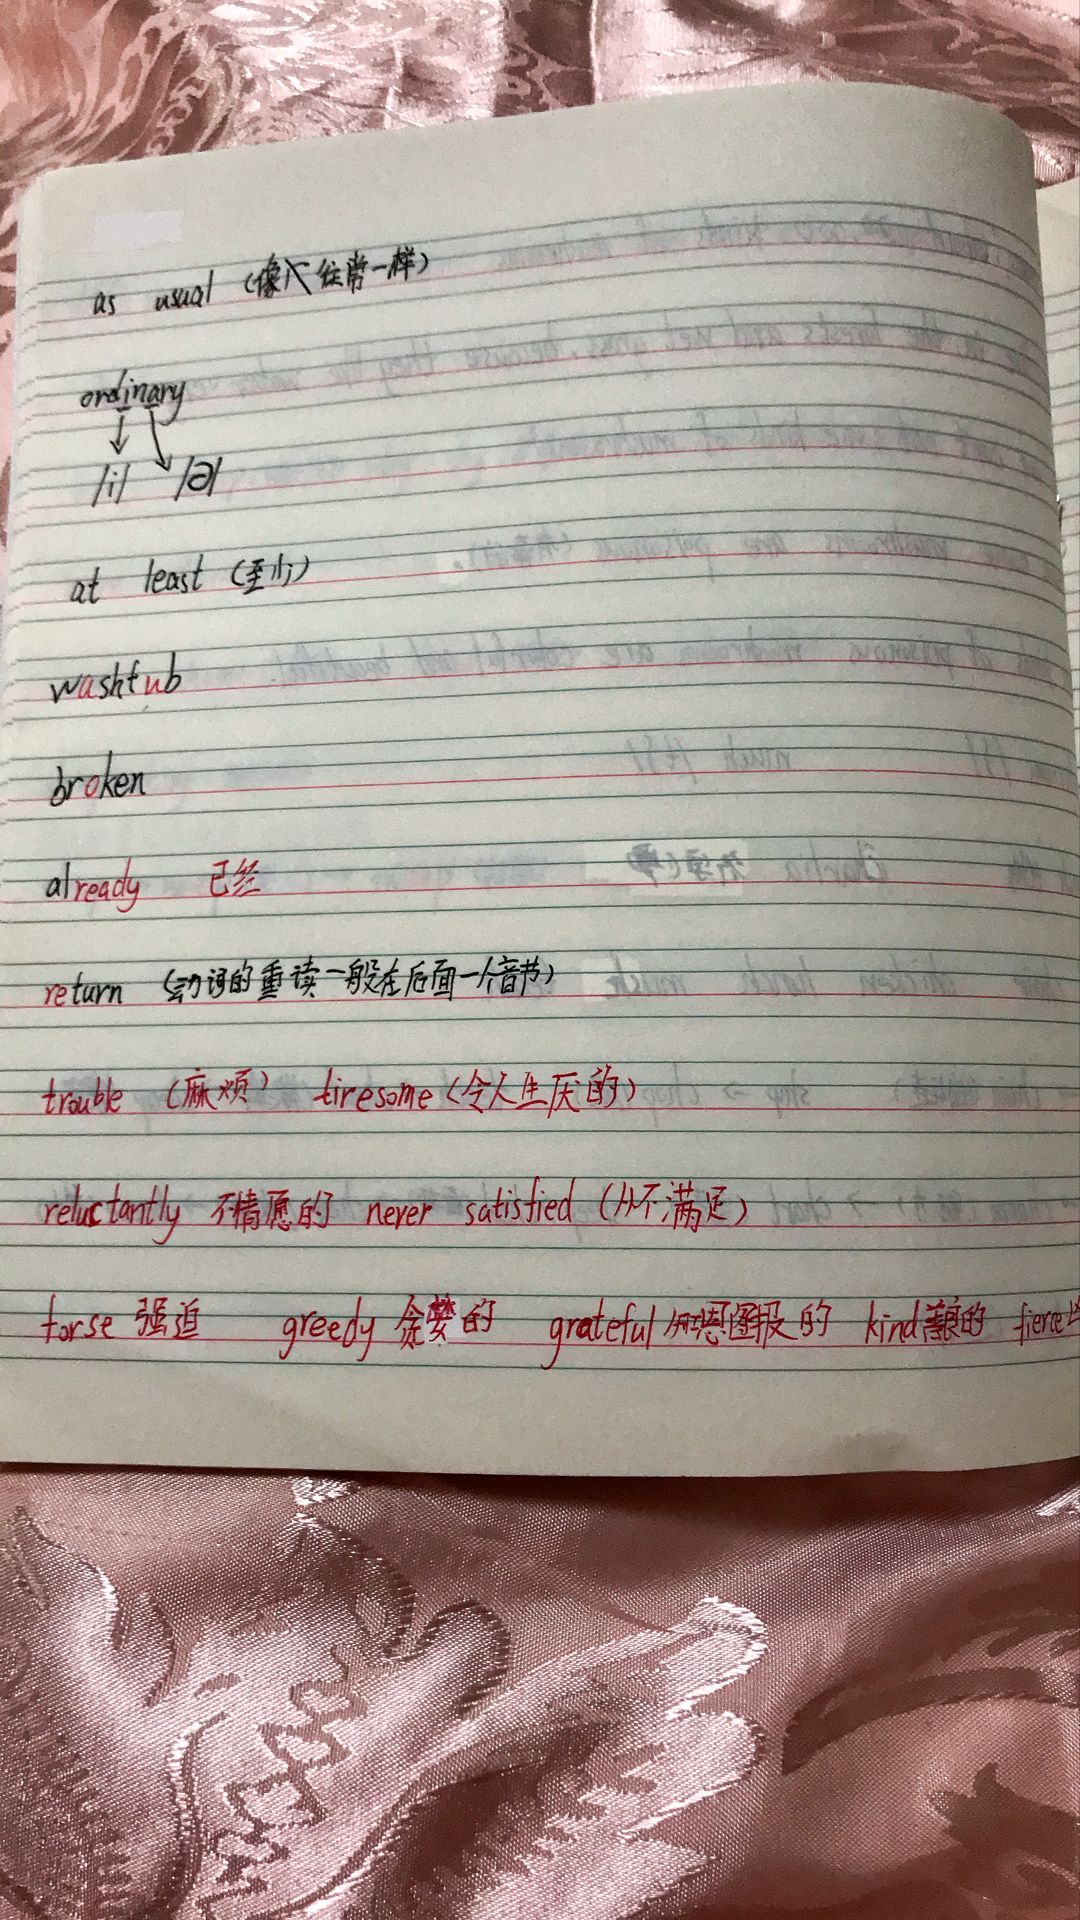 as usual (像往常一样)
ordinary
/i/ /ə/
at least (至少)
washtub
broken
already 已经
return (动词的重读一般在后面一个音节)
trouble (麻烦) tiresome (令人生厌的)
reluctantly 不情愿的 never satisfied (从不满足)
forse 强迫 greedy 贪婪的 grateful 知恩图报的 kind 善良的 fierce